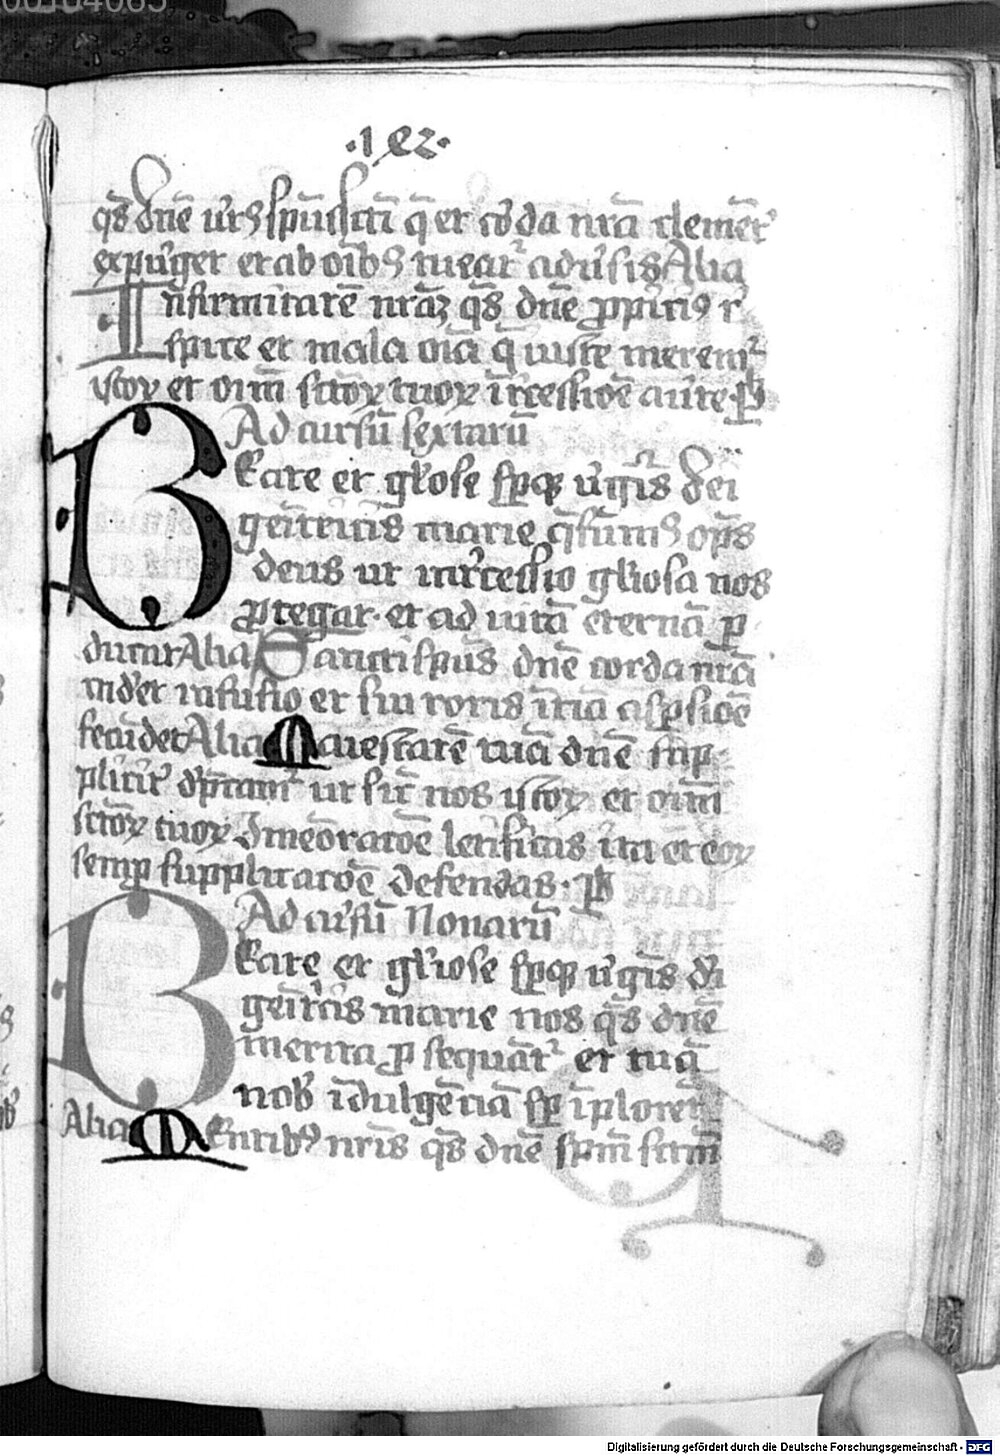 00104065
·1 e2·
qs̄ dn̄e virt9 sp̄usscī q̄ et cōda nr̄a clemēt᷑
expurget et ab oīb9 tueat᷑ aduersis Alia
Infirmitatē nr̄aꝫ qs̄ dn̄e ꝓpiti9 r
spice et mala oīa q̄ iuste merem᷑
istoꝝ et oīm sctōꝝ tuoꝝ īt̄cessiōē auerte · p
Ad cursū sextarū
Beate et gl̓ose sp̄ꝙ v̓gīs dei
genitricis marie q̄sum9 op̄s
deus ut int̓cessio gl̓iosa nos
ꝓtegat · et ad vitā eternā ꝑ
ducat Alia Sancti sp̄us dn̄e corda nr̄a
mūdet infusio et sui roris ītīa asꝑsiōē
fecūdet Alia Maiestatē tuā dn̄e sup
plicit᷑ dp̄cam᷑ ut sic̄ nos istoꝝ et oīm
sctōꝝ tuoꝝ 9meōratōē letificas ita et eoꝝ
semꝑ supplicatōē defendas · p
Ad cursū Nonarū
Beate et gl̓iose sp̄ꝙ v̓gīs di
genīt̓cis marie nos qs̄ dn̄e
merita ꝓsequāt᷑ et tuā
nob̄ īdulgētiā sp̄ īplorēt
Alia Mentib9 nr̄is qs̄ dn̄e sp̄m sctm̄
Digitalisierung gefördert durch die Deutsche Forschungsgemeinschaft - DFG